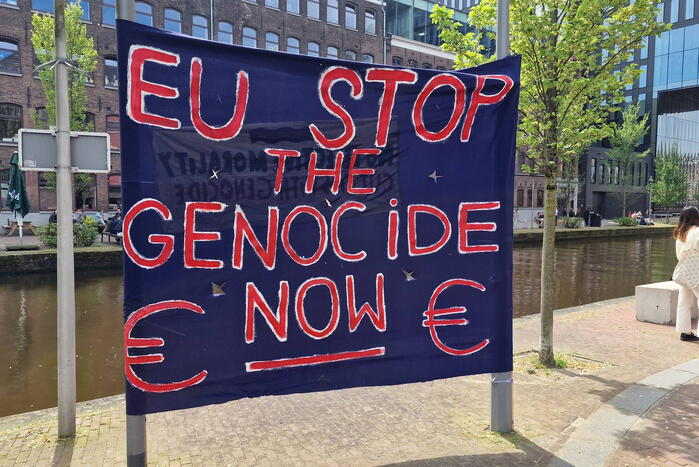 EU STOP
THE
GENOCIDE
NOW
€ €